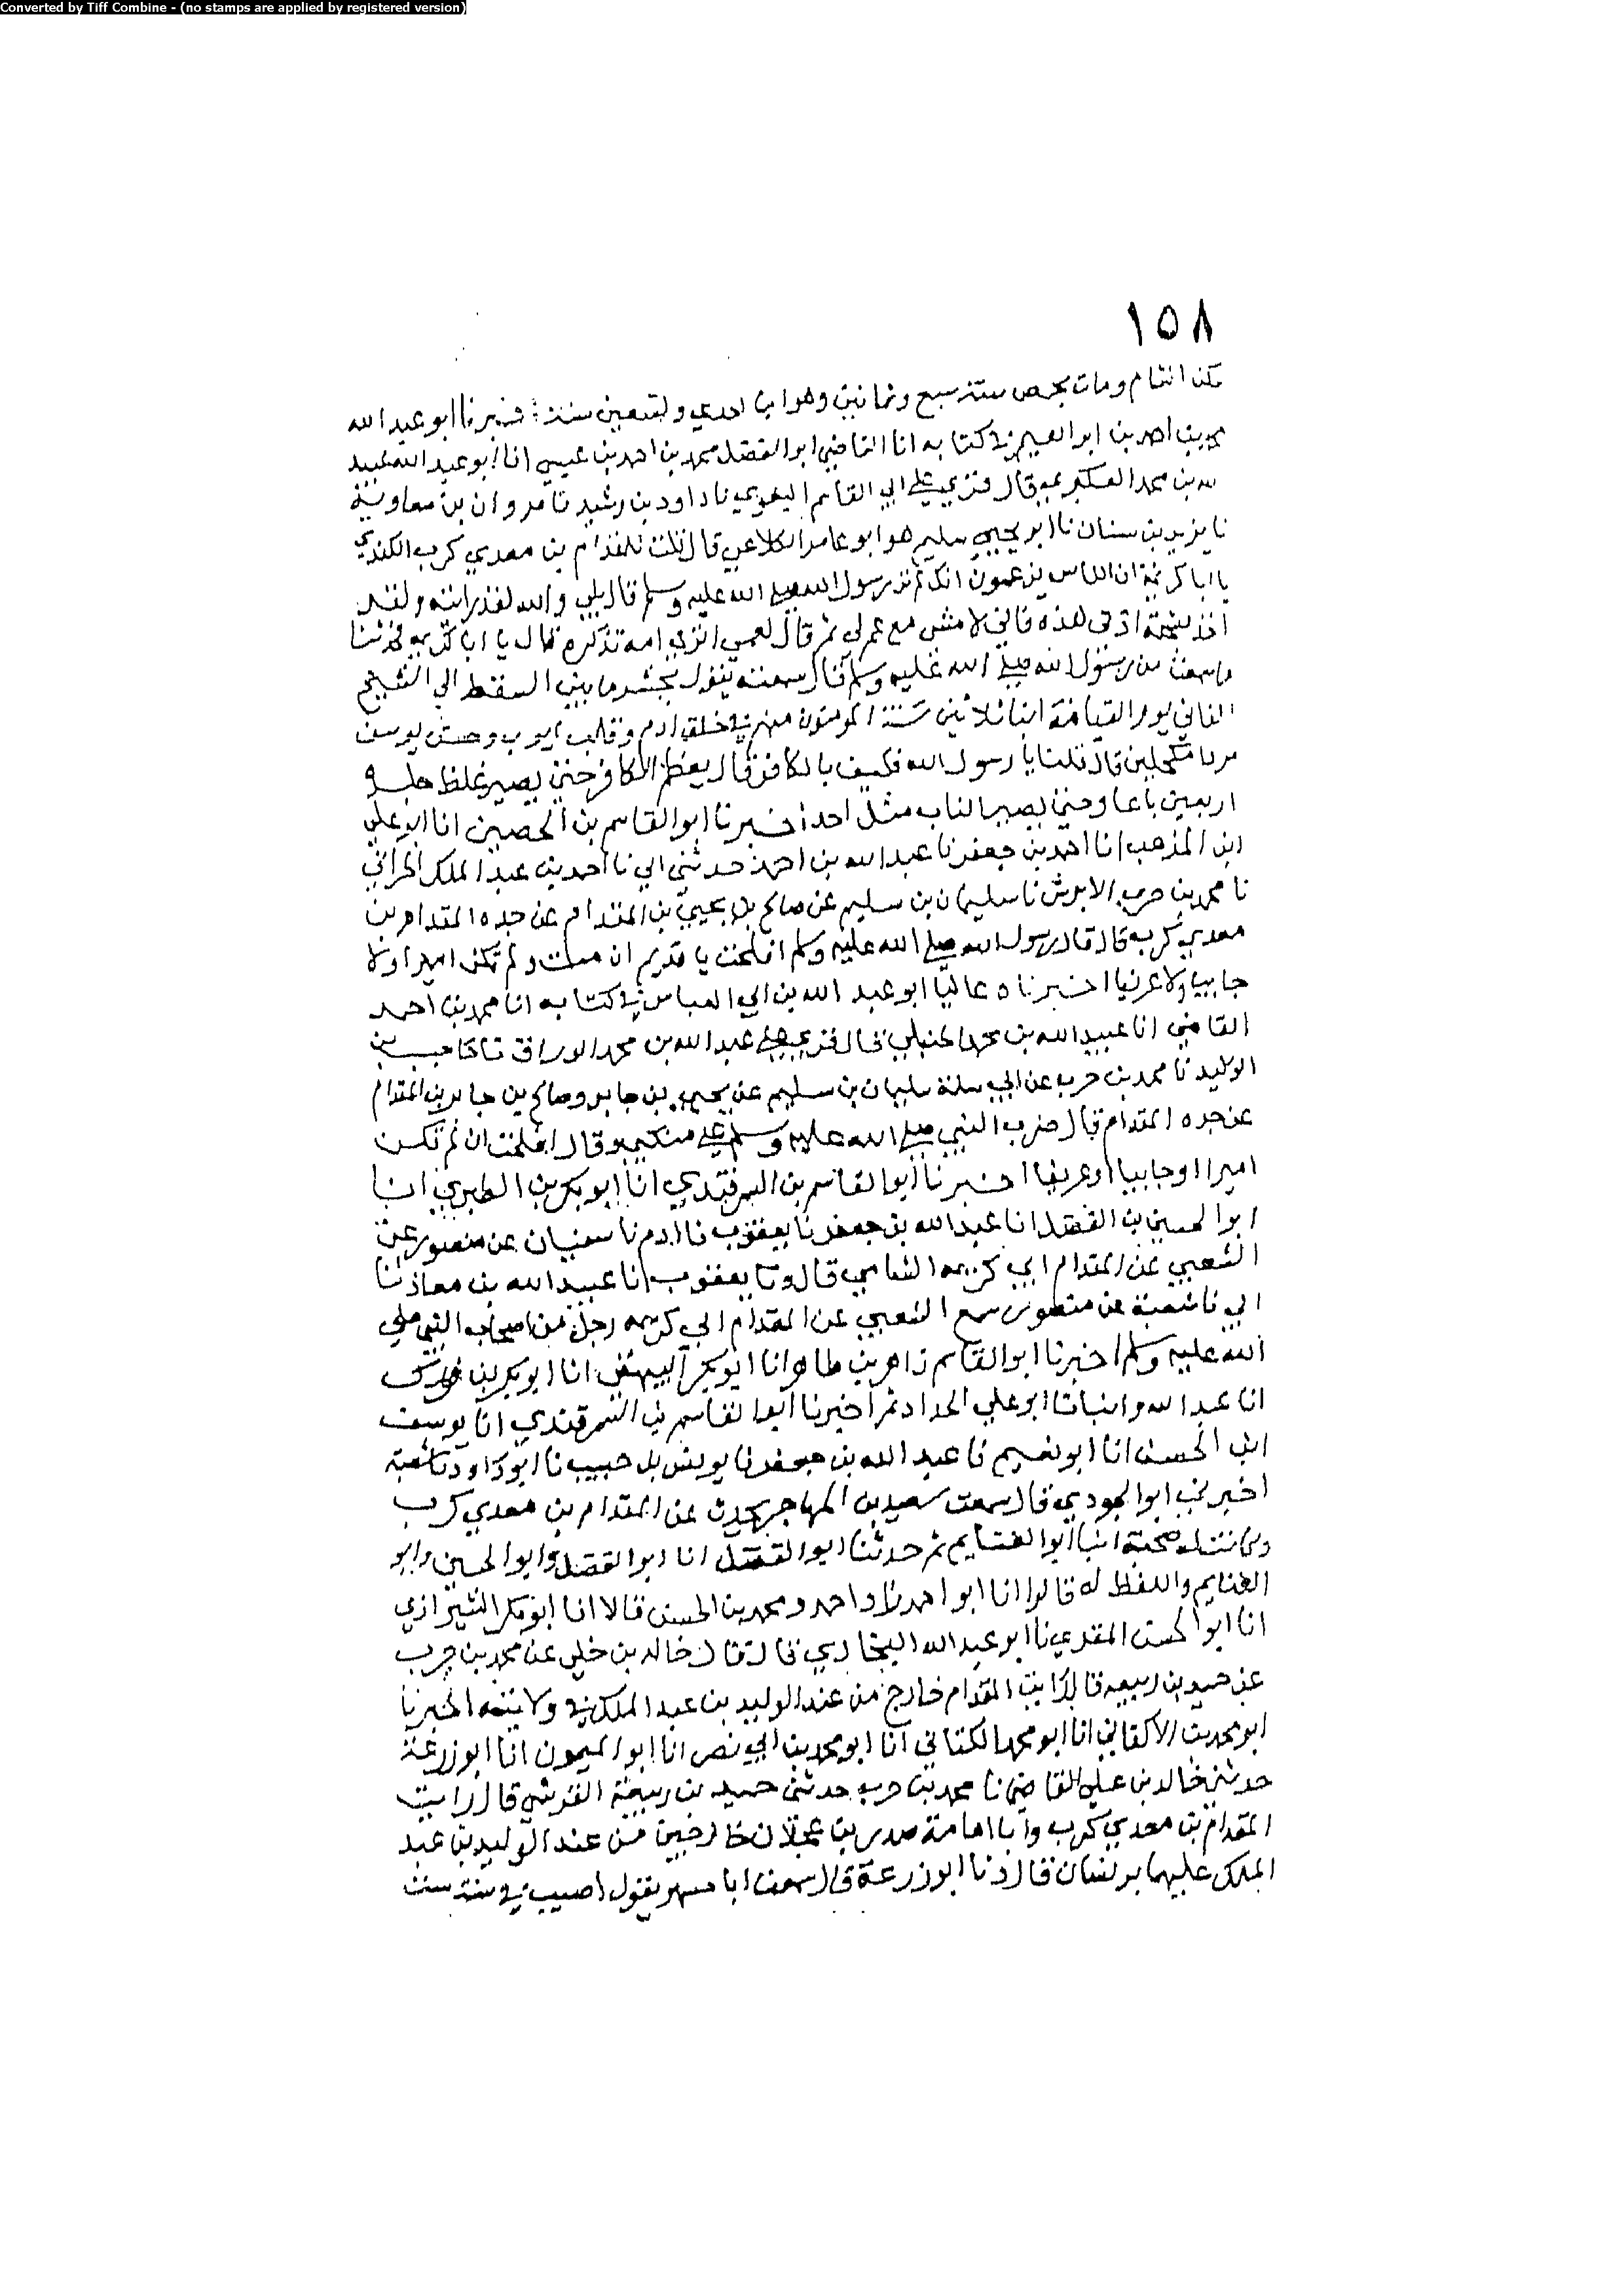 Converted by Tiff Combine - (no stamps are applied by registered version)
١٥٨
سكن الشام ومات بحمص سنة سبع وثمانين وهو ابن احدى وتسعين سنة اخبرنا ابو عبد الله
محمد بن احمد بن ابراهيم في كتابه انا القاضي ابو الفضل محمد بن احمد بن عيسى انا ابو عبد الله عبيد
الله بن محمد العكبري قال قرئ على ابي القاسم البغوي نا داود بن رشيد نا مروان بن معاوية
نا يزيد بن سنان نا ابو يحيى سليم هو ابو عامر الكلاعي قال قلت للمقدام بن معدي كرب الكندي
يا ابا كريمة ان الناس يزعمون انك لم تر رسول الله صلى الله عليه وسلم قال بلى والله لقد رايته ولقد
اخذ بشحمة اذني هذه فاني لامشي مع عم لي ثم قال لعمي اترى انه تذكره قال يا ابا كريمة فحدثنا
ما سمعت من رسول الله صلى الله عليه وسلم قال سمعته يقول يحشر ما بين السقط الى الشيخ
الفاني يوم القيامة ابنا ثلاثين سنة المومنون منهم في خلق ادم وقلب ايوب وحسن يوسف
مردا مكحلين قال قلنا يا رسول الله فكيف بالكافر قال يعظم الكافر حتى يصير غلظ جلده
اربعين باعا وحتى يصير الناب مثل احد اخبرنا ابو القاسم بن الحصين انا ابو علي
ابن المذهب انا احمد بن جعفر نا عبد الله بن احمد حدثني ابي نا احمد بن عبد الملك الحراني
نا محمد بن حرب الابرش نا سليمان بن سليم عن صالح بن يحيى بن المقدام عن جده المقدام بن
معدي كرب قال قال رسول الله صلى الله عليه وسلم افلحت يا قديم ان مت ولم تكن اميرا ولا
جابيا ولا عريفا اخبرناه عاليا ابو عبد الله بن ابي العباس في كتابه انا محمد بن احمد
القاضي انا عبيد الله بن محمد الحنبلي قال قرئ على عبد الله بن محمد الوراق نا حاجب بن
الوليد نا محمد بن حرب عن ابي سلمة سليمان بن سليم عن يحيى بن جابر وصالح بن جابر بن المقدام
عن جده المقدام قال ضرب النبي صلى الله عليه وسلم على منكبي وقال افلحت ان لم تكن
اميرا او جابيا او عريفا اخبرنا ابو القاسم بن السمرقندي انا ابو بكر بن الطبري انا
ابو الحسين بن الفضل انا عبد الله بن جعفر نا يعقوب نا ادم نا سفيان عن منصور عن
الشعبي عن المقدام ابي كريمة الشامي قال ونا يعقوب نا عبيد الله بن معاذ نا
ابي نا شعبة عن منصور سمع الشعبي عن المقدام ابي كريمه رجل من اصحاب النبي صلى
الله عليه وسلم اخبرنا ابو القاسم زاهر بن طاهر انا ابو بكر البيهقي انا ابو بكر بن فورك
انا عبد الله وانبانا ابو علي الحداد ثم اخبرنا ابو القاسم بن السمرقندي انا يوسف
ابن الحسن انا ابو نعيم نا عبد الله بن جعفر نا يونس بن حبيب نا ابو داود نا شعبة
اخبرني ابو الجودي قال سمعت سعيد بن المهاجر يحدث عن المقدام بن معدي كرب
وكانت له صحبة انبا ابو الغنايم ثم حدثنا ابو الفضل انا ابو الفضل وابو الحسين وابو
الغنايم واللفظ له قالوا انا ابو احمد زاد احمد ومحمد بن الحسن قالا انا ابو بكر الشيرازي
انا ابو الحسن المقري نا ابو عبد الله البخاري قال قال خالد بن خلي عن محمد بن حرب
عن حميد بن ربيعه قال رايت المقدام خارج من عند الوليد بن عبد الملك في ولايته اخبرنا
ابو محمد بن الاكفاني انا ابو محمد الكتاني انا ابو محمد بن ابي نصر انا ابو الميمون انا ابو زرعة
حدثني خالد بن خلي القاضي نا محمد بن حرب حدثني حميد بن ربيعة القرشي قال رايت
المقدام بن معدي كرب وابا امامة صدي بن عجلان خارجين من عند الوليد بن عبد
الملك عليهما برنسان قال ونا ابو زرعة قال سمعت ابا مسهر يقول اصيب في سنة ست